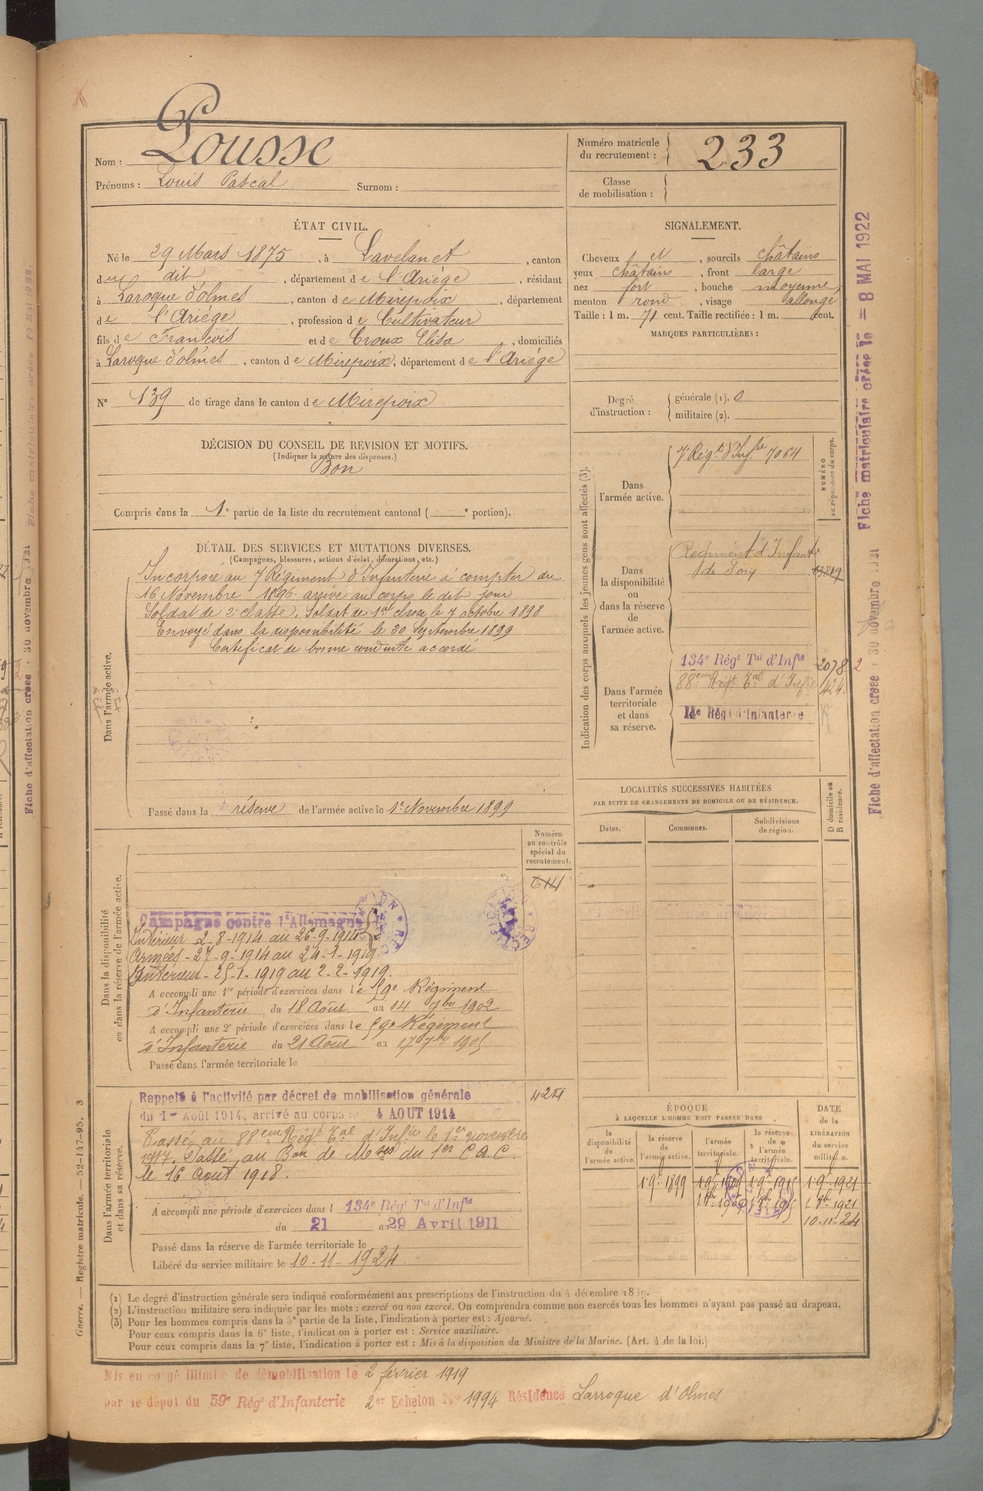 Nom : Pousse
Prénoms : Louis Pascal Surnom :
Numéro matricule du recrutement : 233
Classe de mobilisation :
ÉTAT CIVIL.
Né le 29 Mars 1875, à Lavelanet, canton
du dit, département de l'Ariége, résidant
à Laroque d'olmes, canton de Mirepoix, département
de l'Ariége, profession de Cultivateur
fils de François et de Croux Elisa, domiciliés
à Laroque d'olmes, canton de Mirepoix, département de l'Ariége
N° 139 de tirage dans le canton de Mirepoix
SIGNALEMENT.
Cheveux et, sourcils châtains
yeux châtains, front large
nez fort, bouche moyenne
menton rond, visage allongé
Taille : 1 m. 71 cent. Taille rectifiée : 1 m. cent.
MARQUES PARTICULIÈRES :
Degré d'instruction : générale (1). 0
militaire (2).
DÉCISION DU CONSEIL DE REVISION ET MOTIFS.
(Indiquer la nature des dispenses.)
Bon
Compris dans la 1e partie de la liste du recrutement cantonal ( e portion).
DÉTAIL DES SERVICES ET MUTATIONS DIVERSES.
(Campagnes, blessures, actions d'éclat, décorations, etc.)
Dans l'armée active.
Incorporé au 7 Régiment d'Infanterie à compter du
16 Novembre 1896 arrivé au corps le dit jour
Soldat de 2e classe, Soldat de 1re classe le 7 octobre 1898
Envoyé dans la disponibilité le 20 Septembre 1899
Certificat de bonne conduite accordé
Passé dans la réserve de l'armée active le 1er Novembre 1899
Indication des corps auxquels les jeunes gens sont affectés (3).
NUMÉRO au répertoire du corps.
Dans l'armée active.
7 Régt d'Infrie 7064
Dans la disponibilité ou dans la réserve de l'armée active.
Régiment d'Infrie
de Foix
Dans l'armée territoriale et dans sa réserve.
134e Régt Tal d'Infie 2078
88eme Regt Tal d'Infie 424
14e Régt d'Infanterie
LOCALITÉS SUCCESSIVES HABITÉES
PAR SUITE DE CHANGEMENTS DE DOMICILE OU DE RÉSIDENCE.
Dates. Communes. Subdivisions de région. D domicile ou R résidence.
Dans la disponibilité ou dans la réserve de l'armée active.
Numéro au contrôle spécial du recrutement.
614
Campagne contre l'Allemagne
Intérieur 2-8-1914 au 26-9-1914
Armées - 27-9-1914 au 24-1-1919
Intérieur - 25-1-1919 au 2-2-1919.
A accompli une 1re période d'exercices dans le 59e Régiment
d'Infanterie du 18 Août au 14 7bre 1902
A accompli une 2e période d'exercices dans le 59e Régiment
d'Infanterie du 21 Août au 17 7bre 1905
Passé dans l'armée territoriale le
Dans l'armée territoriale et dans sa réserve.
Rappelé à l'activité par décret de mobilisation générale
du 1er Août 1914, arrivé au corps le 4 AOUT 1914
Passé au 88eme Régt Tal d'Infie le 1er novembre
1917. Passé au Bon de Mses du 1er C.A.C.
le 16 Aout 1918.
A accompli une période d'exercices dans l 134e Régt Tal d'Infie
du 21 au 29 Avril 1911
Passé dans la réserve de l'armée territoriale le
Libéré du service militaire le 10-11-1924
ÉPOQUE
À LAQUELLE L'HOMME DOIT PASSER DANS
la disponibilité de l'armée active. la réserve de l'armée active. l'armée territoriale. la réserve de l'armée territoriale.
DATE de la LIBÉRATION du service militaire.
1-9e 1899 1-9-1921
1 8b 1921
10-11-24
(1) Le degré d'instruction générale sera indiqué conformément aux prescriptions de l'instruction du 4 décembre
(2) L'instruction militaire sera indiquée par les mots : exercé ou non exercé. On comprendra comme non exercés tous les hommes n'ayant pas passé au drapeau.
(3) Pour les hommes compris dans la 5e partie de la liste, l'indication à porter est : Ajourné.
Pour ceux compris dans la 6e liste, l'indication à porter est : Service auxiliaire.
Pour ceux compris dans la 7e liste, l'indication à porter est : Mis à la disposition du Ministre de la Marine. (Art. 4 de la loi.)
Mis en congé illimité de démobilisation le 2 février 1919
par le dépot du 59e Régt d'Infanterie 2er Echelon No 1994 Résidence Larroque d'Olmes
Guerre. — Registre matricule. — 52-147-95. 3
Fiche matriculaire créée le = 8 MAI 1922
Fiche d'affectation créée 30 novembre 1921